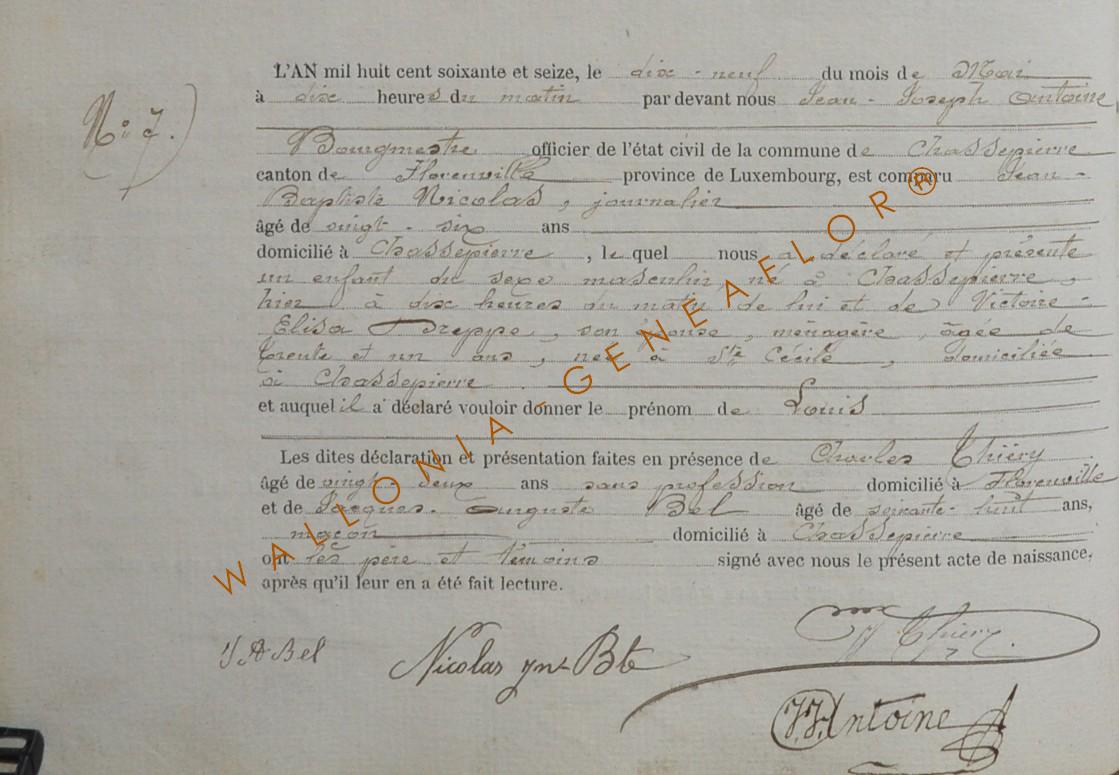 L'AN mil huit cent soixante et seize, le dix-neuf du mois de Mai
à dix heures du matin par devant nous Jean-Joseph Antoine
N:7.)
Bourgmestre officier de l'état civil de la commune de Chassepierre
canton de Florenville province de Luxembourg, est comparu Jean-
Baptiste Nicolas, journalier
âgé de vingt-six ans
domicilié à Chassepierre, le quel nous a déclaré et présente
un enfant du sexe masculin, né à Chassepierre,
hier à dix heures du matin, de lui et de Victoire-
Elisa Dreppe, son épouse, ménagère, âgée de
trente et un ans, née à Ste Cécile, domiciliée
à Chassepierre.
et auquel il a déclaré vouloir donner le prénom de Louis
Les dites déclaration et présentation faites en présence de Charles Thiéry
âgé de vingt-deux ans sans profession domicilié à Florenville
et de Jacques-Auguste Bel âgé de soixante-huit ans,
maçon domicilié à Chassepierre
ont les père et témoins signé avec nous le présent acte de naissance,
après qu'il leur en a été fait lecture.
WALLONIA - GENEAFLOR®
J A Bel
Nicolas jn Bte
Thiéry
J.J. Antoine